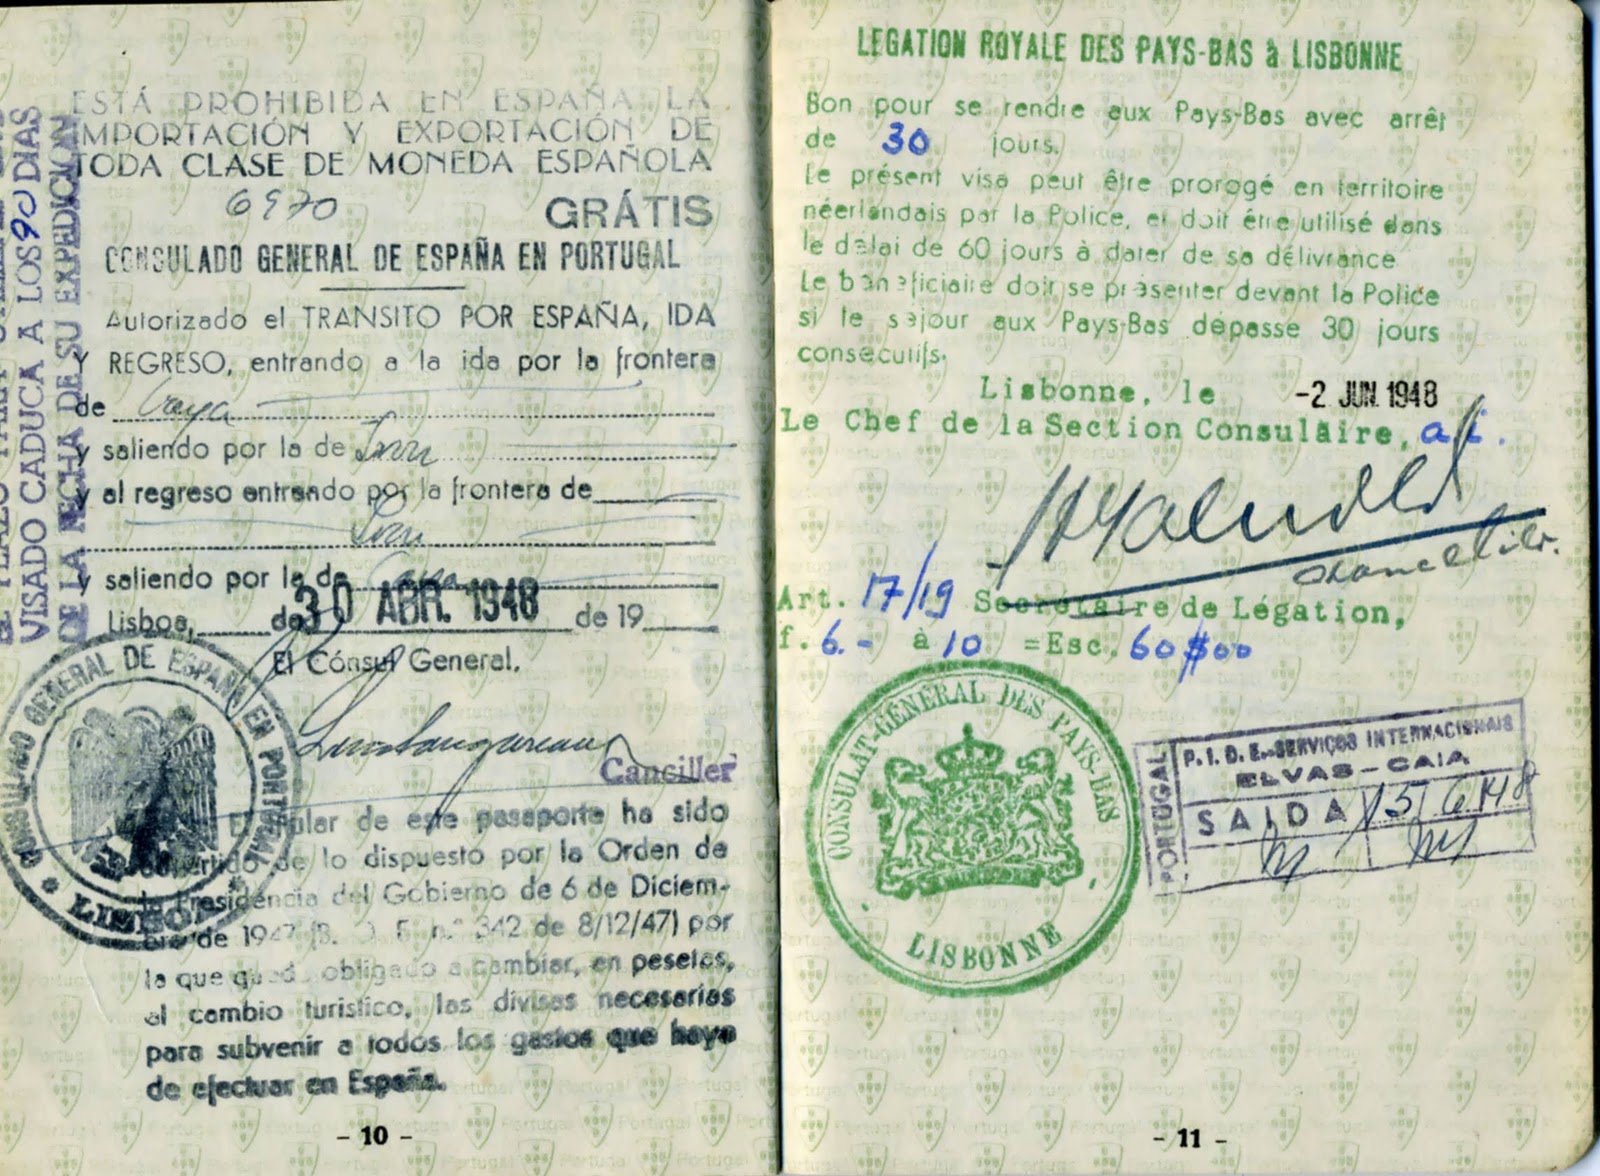 ESTÁ PROHIBIDA EN ESPAÑA LA
IMPORTACIÓN Y EXPORTACIÓN DE
TODA CLASE DE MONEDA ESPAÑOLA
6970 GRÁTIS
CONSULADO GENERAL DE ESPAÑA EN PORTUGAL
Autorizado el TRANSITO POR ESPAÑA, IDA
Y REGRESO, entrando a la ida por la frontera
de Caya
y saliendo por la de Irun
y al regreso entrando por la frontera de
Irun
y saliendo por la de Caya
Lisboa, de 30 ABR. 1948 de 19
El Cónsul General,
Canciller
El titular de este pasaporte ha sido
advertido de lo dispuesto por la Orden de
la Presidencia del Gobierno de 6 de Diciem-
bre de 1947 (B. O. E. n.º 342 de 8/12/47) por
la que queda obligado a cambiar, en pesetas,
al cambio turístico, las divisas necesarias
para subvenir a todos los gastos que haya
de efectuar en España.
VISADO CADUCA A LOS 90 DIAS
DE LA FECHA DE SU EXPEDICION
CONSULADO GENERAL DE ESPAÑA EN PORTUGAL
LISBOA
- 10 -
LEGATION ROYALE DES PAYS-BAS à LISBONNE
Bon pour se rendre aux Pays-Bas avec arrêt
de 30 jours.
Le présent visa peut être prorogé en territoire
néerlandais par la Police, et doit être utilisé dans
le délai de 60 jours à dater de sa délivrance
Le bénéficiaire doit se présenter devant la Police
si le séjour aux Pays-Bas dépasse 30 jours
consecutifs.
Lisbonne, le -2 JUN. 1948
Le Chef de la Section Consulaire, a.i.
chancelier.
Art. 17/19 Secretaire de Légation,
f. 6.- à 10 =Esc. 60$00
CONSULAT-GÉNÉRAL DES PAYS-BAS
LISBONNE
PORTUGAL
P. I. D. E.-SERVIÇOS INTERNACIONAIS
ELVAS-CAIA
SAIDA 15/6/48
- 11 -